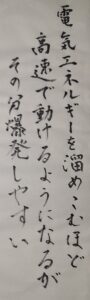 電氣エネルギーを溜めこむほど
高速で動けるようになるが
その分爆発しやすい